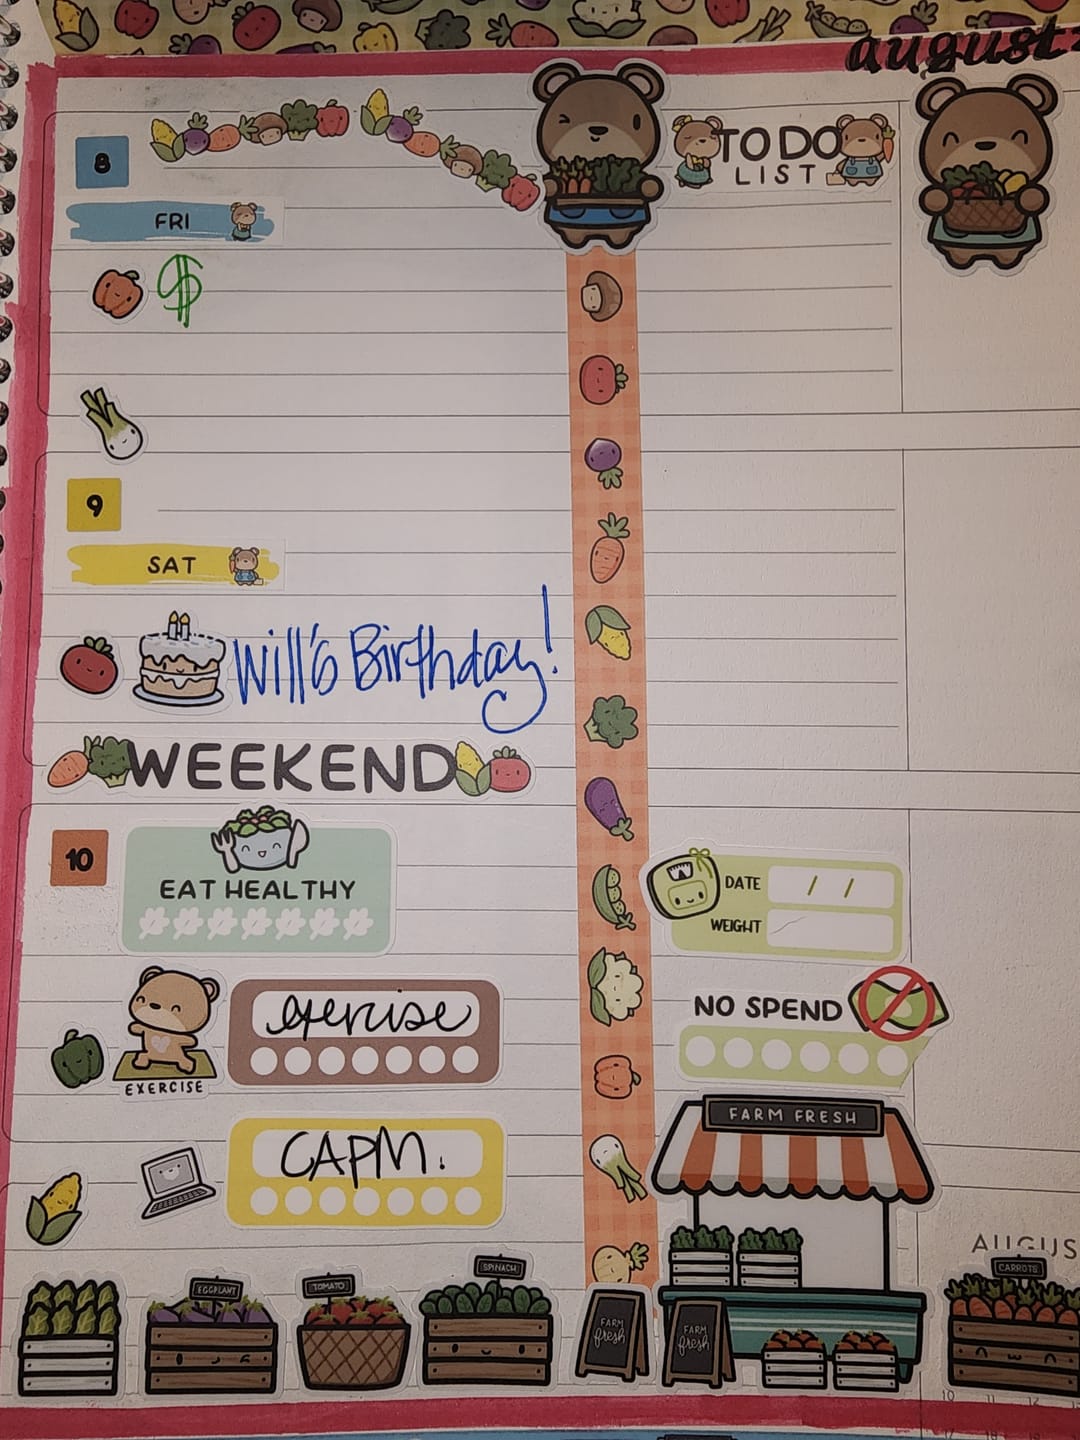 august
8
TO DO
LIST
FRI
$
9
SAT
Will's Birthday!
WEEKEND
10
EAT HEALTHY
DATE / /
WEIGHT
NO SPEND
exercise
EXERCISE
FARM FRESH
CAPM.
AUGUS
EGGPLANT
TOMATO
SPINACH
FARM
fresh
FARM
fresh
CARROTS
10 11 12